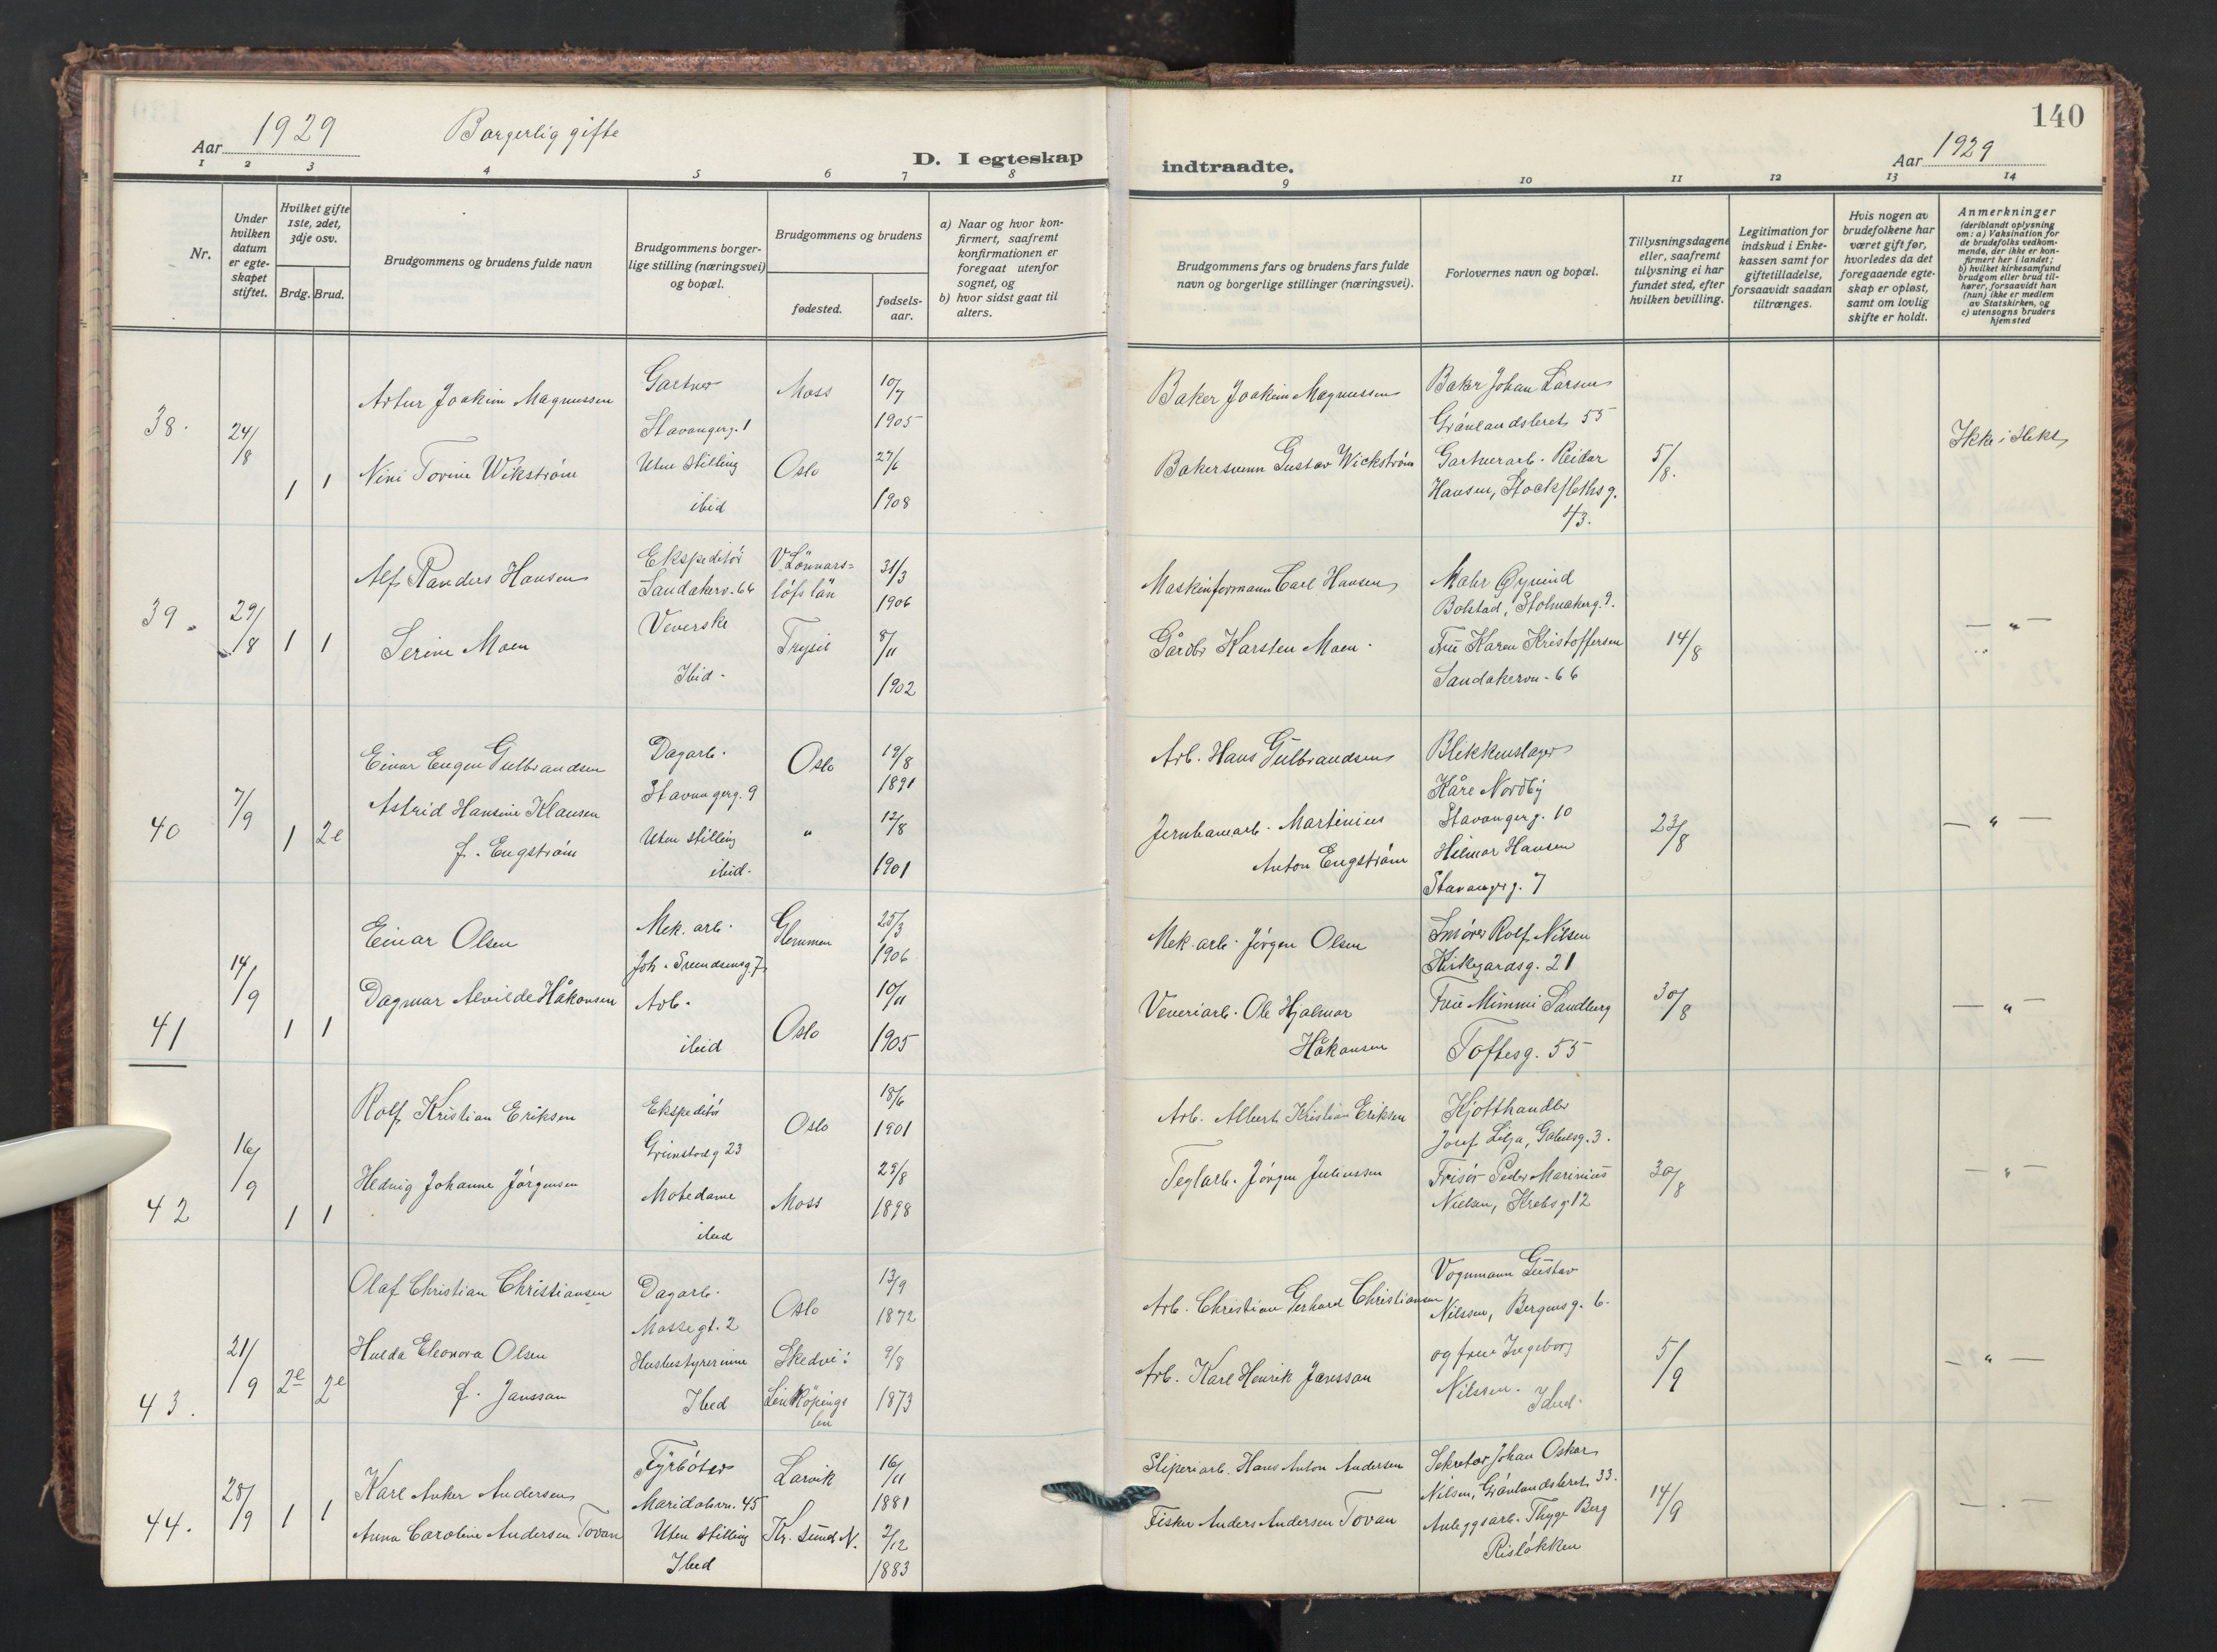 140
Aar 1929 Borgerlig gifte
D. I egteskap indtraadte.
Aar 1929
1 2 3 4 5 6 7 8 9 10 11 12 13 14
Nr.
Under hvilken datum er egte-skapet stiftet.
Hvilket gifte 1ste, 2det, 3dje osv.
Brdg. Brud.
Brudgommens og brudens fulde navn
Brudgommens borger-
lige stilling (næringsvei)
og bopæl.
Brudgommens og brudens
fødested.
fødsels-
aar.
a) Naar og hvor kon-
firmert, saafremt
konfirmationen er
foregaat utenfor
sognet, og
b) hvor sidst gaat til
alters.
Brudgommens fars og brudens fars fulde
navn og borgerlige stillinger (næringsvei).
Forlovernes navn og bopæl.
Tillysningsdagene
eller, saafremt
tillysning ei har
fundet sted, efter
hvilken bevilling.
Legitimation for
indskud i Enke-
kassen samt for
giftetilladelse,
forsaavidt saadan
tiltrænges.
Hvis nogen av
brudefolkene har
været gift før,
hvorledes da det
foregaaende egte-
skap er opløst,
samt om lovlig
skifte er holdt.
Anmerkninger
(deriblandt oplysning
om: a) Vaksination for
de brudefolks vedkom-
mende, der ikke er kon-
firmert her i landet;
b) hvilket kirkesamfund
brudgom eller brud til-
hører, forsaavidt han
(hun) ikke er medlem
av Statskirken, og
c) utensogns bruders
hjemsted
38. 24/8 1 1
Artur Joakim Magnussen
Gartner
Stavangerg. 1
Moss
10/7
1905
Baker Joakim Magnussen
Baker Johan Larsen
Grønlandsleret 55
Nini Tovine Wikstrøm
Uten stilling
ibid
Oslo
27/6
1908
Bakersvenn Gustav Wickstrøm
Gartnerarb. Reidar
Hansen, Stockflethsg.
43.
5/8.
Ikke i slekt
39. 29/8 1 1
Alf Randers Hansen
Ekspeditør
Sandakerv. 66
V Lönnars=
löfs län
31/3
1906
Maskinformann Carl Hansen
Maler Øyvind
Bolstad, Stolmakerg. 9.
Serine Moen
Veverske
Ibid.
Trysil
8/11
1902
Gårdbr Karsten Moen.
Frü Karen Kristoffersen
Sandakervn. 66
14/8
— " —
40 7/9 1 2e
Einar Eugen Gulbrandsen
Dagarb.
Stavangerg. 9
Oslo
19/8
1891
Arb. Hans Gulbrandsen
Blikkenslager
Kåre Nordby
Stavangerg. 10
Astrid Hansine Klausen
f. Engstrøm
Uten stilling
ibid.
"
12/8
1901
Jernbanearb. Martinius
Anton Engstrøm
Hilmar Hansen
Stavangerg. 7
23/8
— " —
41 14/9 1 1
Einar Olsen
Mek. arb.
Joh. Svendsensg. 7
Glemmen
25/3
1906
Mek. arb. Jørgen Olsen
Smører Rolf Nilsen
Kirkegardsg. 21
Dagmar Alvilde Håkonsen
Arb.
ibid
Oslo
10/11
1905
Veveriarb. Ole Hjalmar
Håkonsen
Frue Mimmi Sandberg
Toftesg. 55
30/8
— " —
42 16/9 1 1
Rolf Kristian Eriksen
Ekspeditør
Grimstadg 23
Oslo
18/6
1901
Arb. Albert Kristian Eriksen
Kjøtthandler
Josef Lilja, Gabelsg. 3.
Hedvig Johanne Jørgensen
Motedame
ibid
Moss
29/8
1898
Teglarb. Jørgen Juliussen
Frisør Peder Marinius
Nielsen, Krebsg 12
30/8
— " —
43. 21/9 2e 2e
Olaf Christian Christiansen
Dagarb.
Mossegt. 2
Oslo
13/9
1872
Arb. Christian Gerhard Christiansen
Vognmann Gustav
Nilssen, Bergensg. 6.
Hulda Eleonora Olsen
f. Jansson
Husbestyrerinne
Ibid
Skedvi:
Linköpings
len
9/8
1873
Arb. Karl Henrik Jansson
og frue Ingeborg
Nilssen. Ibid.
5/9
— " —
44. 28/9 1 1
Karl Anker Andersen
Fyrbøter
Maridalsvn. 45
Larvik
16/11
1881
Sliperiarb. Hans Anton Andersen
Sekretær Johan Oskar
Nilsen, Grønlandsleret 33.
Anna Caroline Andersen Tovan
Uten stilling
Ibid
Kr. sund N.
2/12
1883
Fisker Anders Andersen Tovan
Anleggsarb. Thygo Berg
Risløkken
14/9
— " —